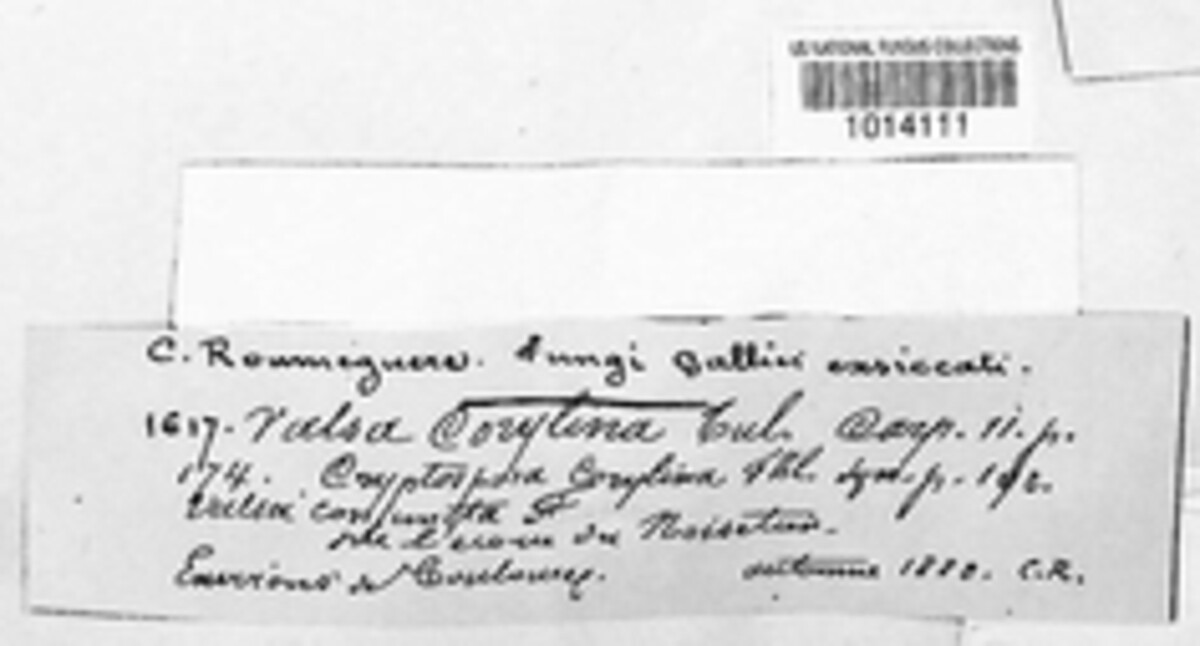 US NATIONAL FUNGUS COLLECTIONS
1014111
C. Roumeguere. Fungi Gallici exsiccati.
1617. Valsa Corylina Tul. Carp. ii. p.
174. Cryptospora Corylina Fkl. Sym. p. 192.
Valsa conjuncta Fr
sur l'ecorce du Noisetier.
Environs de Toulouse. automne 1880. C.R.